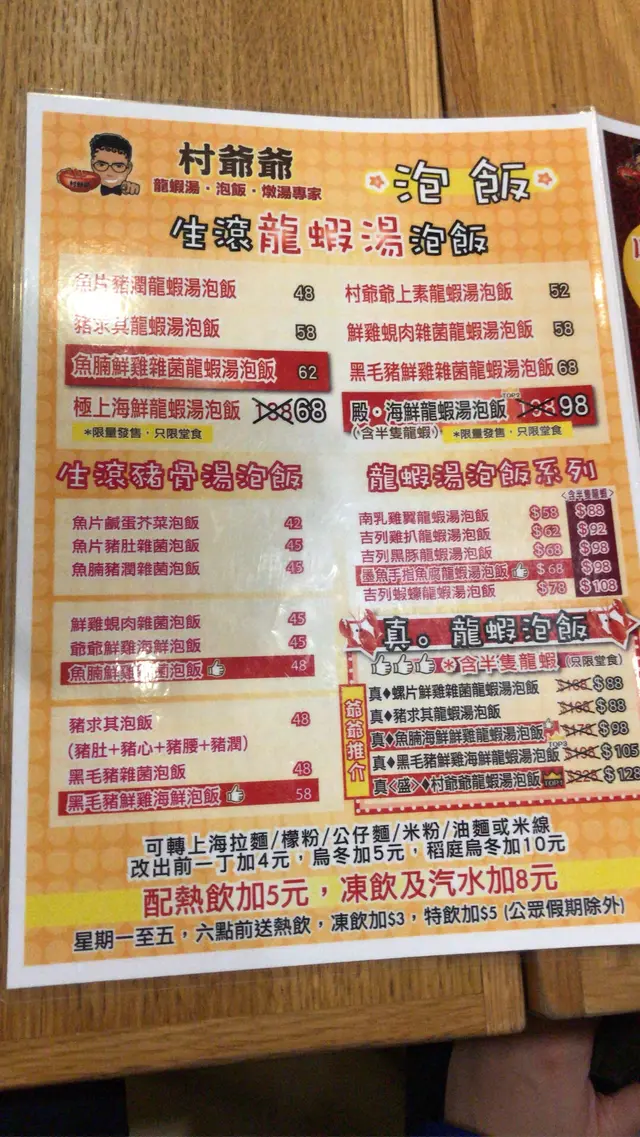 村爺爺
龍蝦湯·泡飯·燉湯專家
泡飯
生滾龍蝦湯泡飯
魚片豬潤龍蝦湯泡飯 48
豬求其龍蝦湯泡飯 58
魚腩鮮雞雜菌龍蝦湯泡飯 62
極上海鮮龍蝦湯泡飯 138 68
*限量發售·只限堂食
村爺爺上素龍蝦湯泡飯 52
鮮雞蜆肉雜菌龍蝦湯泡飯 58
黑毛豬鮮雞雜菌龍蝦湯泡飯 68
殿·海鮮龍蝦湯泡飯 98
(含半隻龍蝦) *限量發售·只限堂食
生滾豬骨湯泡飯
魚片鹹蛋芥菜泡飯 42
魚片豬肚雜菌泡飯 45
魚腩豬潤雜菌泡飯 45
鮮雞蜆肉雜菌泡飯 45
爺爺鮮雞海鮮泡飯 45
魚腩鮮雞雜菌泡飯 48
豬求其泡飯 48
(豬肚+豬心+豬腰+豬潤)
黑毛豬雜菌泡飯 48
黑毛豬鮮雞海鮮泡飯 58
龍蝦湯泡飯系列
<含半隻龍蝦>
南乳雞翼龍蝦湯泡飯 $58 $88
吉列雞扒龍蝦湯泡飯 $62 $92
吉列黑豚龍蝦湯泡飯 $68 $98
墨魚手指魚腐龍蝦湯泡飯 $68 $98
吉列蝦蠔龍蝦湯泡飯 $78 $108
真。龍蝦泡飯
*含半隻龍蝦 (只限堂食)
爺爺推介
真♦螺片鮮雞雜菌龍蝦湯泡飯 $88
真♦豬求其龍蝦湯泡飯 $88
真♦魚腩海鮮鮮雞龍蝦湯泡飯 $98
真♦黑毛豬鮮雞海鮮龍蝦湯泡飯 $108
真<盛>♦村爺爺龍蝦湯泡飯 $128
可轉上海拉麵/檬粉/公仔麵/米粉/油麵或米線
改出前一丁加4元，烏冬加5元，稻庭烏冬加10元
配熱飲加5元，凍飲及汽水加8元
星期一至五，六點前送熱飲，凍飲加$3，特飲加$5 (公眾假期除外)